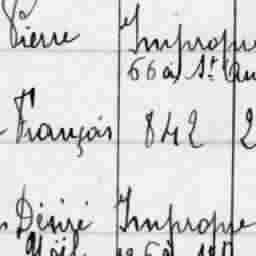 Pierre Impropre
66 a, St
François 842 2
Désiré Impropre
Noël